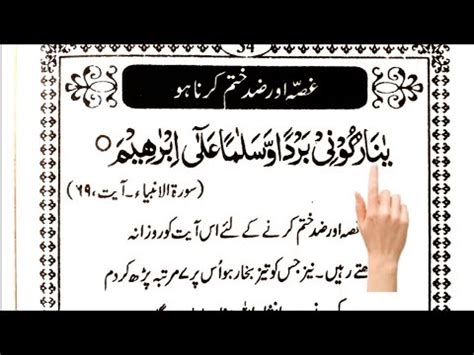 34
غصّہ اور ضد ختم کرنا ہو
یٰنَارُ کُوْنِیْ بَرْدًا وَّسَلٰمًا عَلٰٓی اِبْرٰهِیْمَ ○
(سورۃ الانبیاء۔ آیت، ۶۹)
غصہ اور ضد ختم کرنے کے لئے اس آیت کو روزانہ
ھتے رہیں۔ نیز جس کو تیز بخار ہو اُس پر ۷ مرتبہ پڑھ کر دم